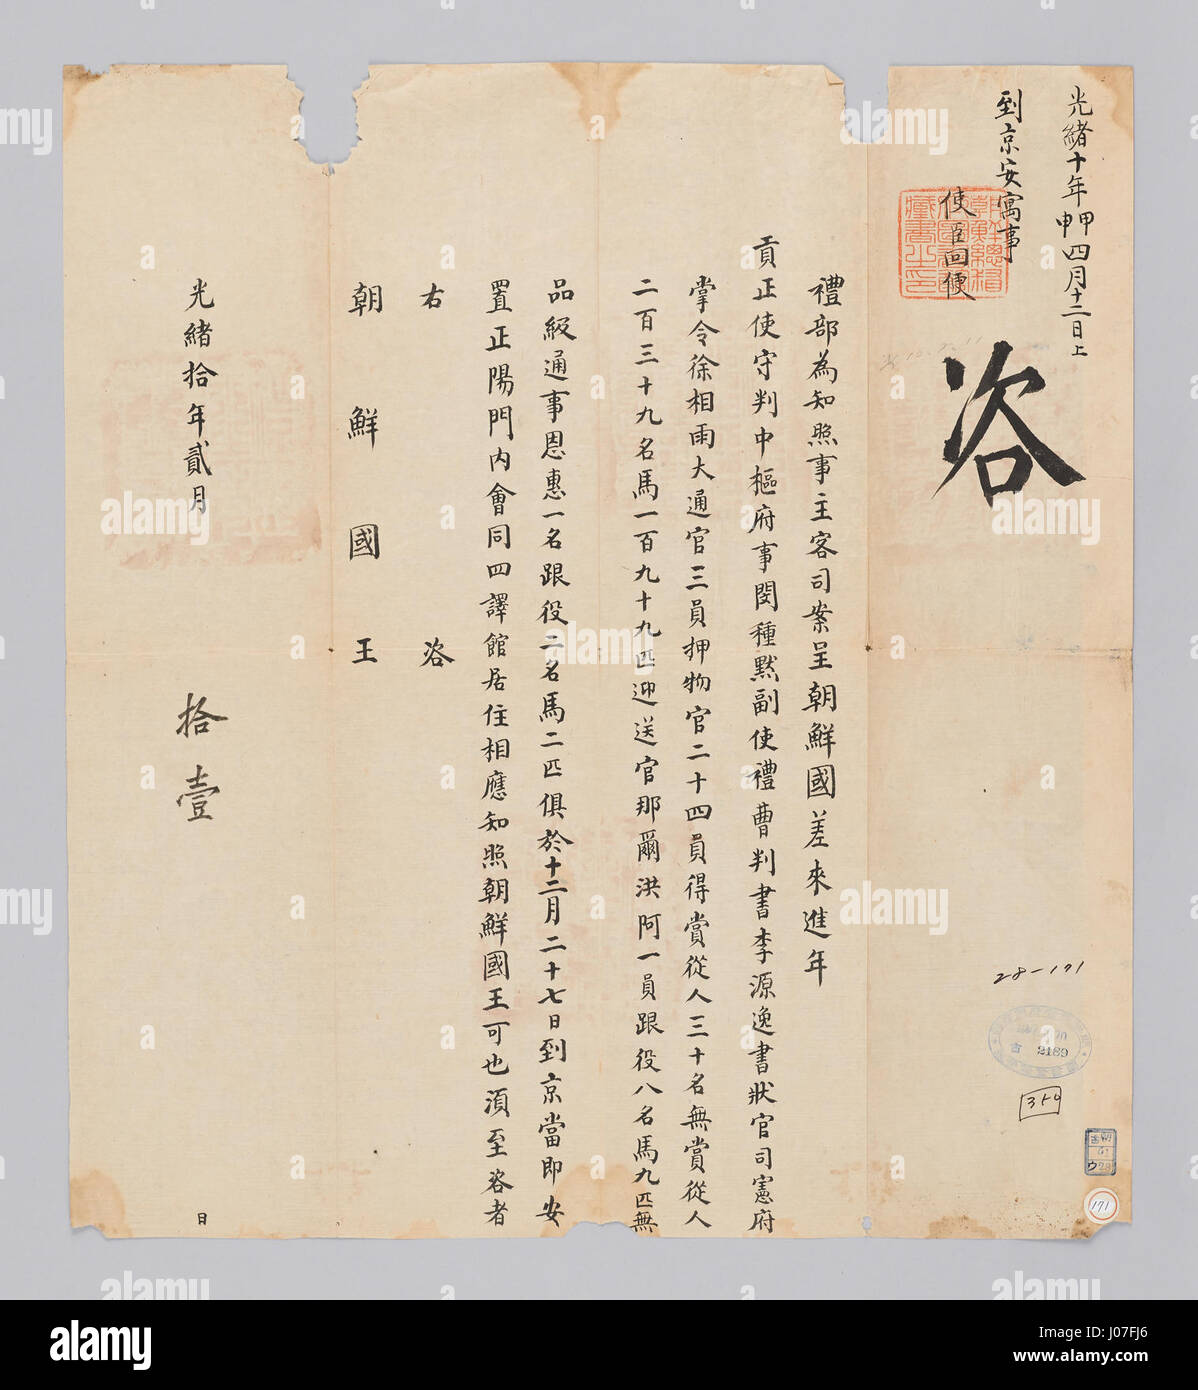 光緒十年甲申四月十二日上
到京安寓事
使臣回便
咨
禮部為知照事主客司案呈朝鮮國差來進年
貢正使守判中樞府事閔種默副使禮曹判書李源逸書狀官司憲府
掌令徐相雨大通官三員押物官二十四員得賞從人三十名無賞從人
二百三十九名馬一百九十九匹迎送官那爾洪阿一員跟役八名馬九匹無
品級通事恩惠一名跟役二名馬二匹俱於十二月二十七日到京當即安
置正陽門內會同四譯館居住相應知照朝鮮國王可也須至咨者
右咨
朝鮮國王
光緒拾年貳月拾壹日
28-171
古 2189
350
171
alamy
Image ID: J07FJ6
www.alamy.com